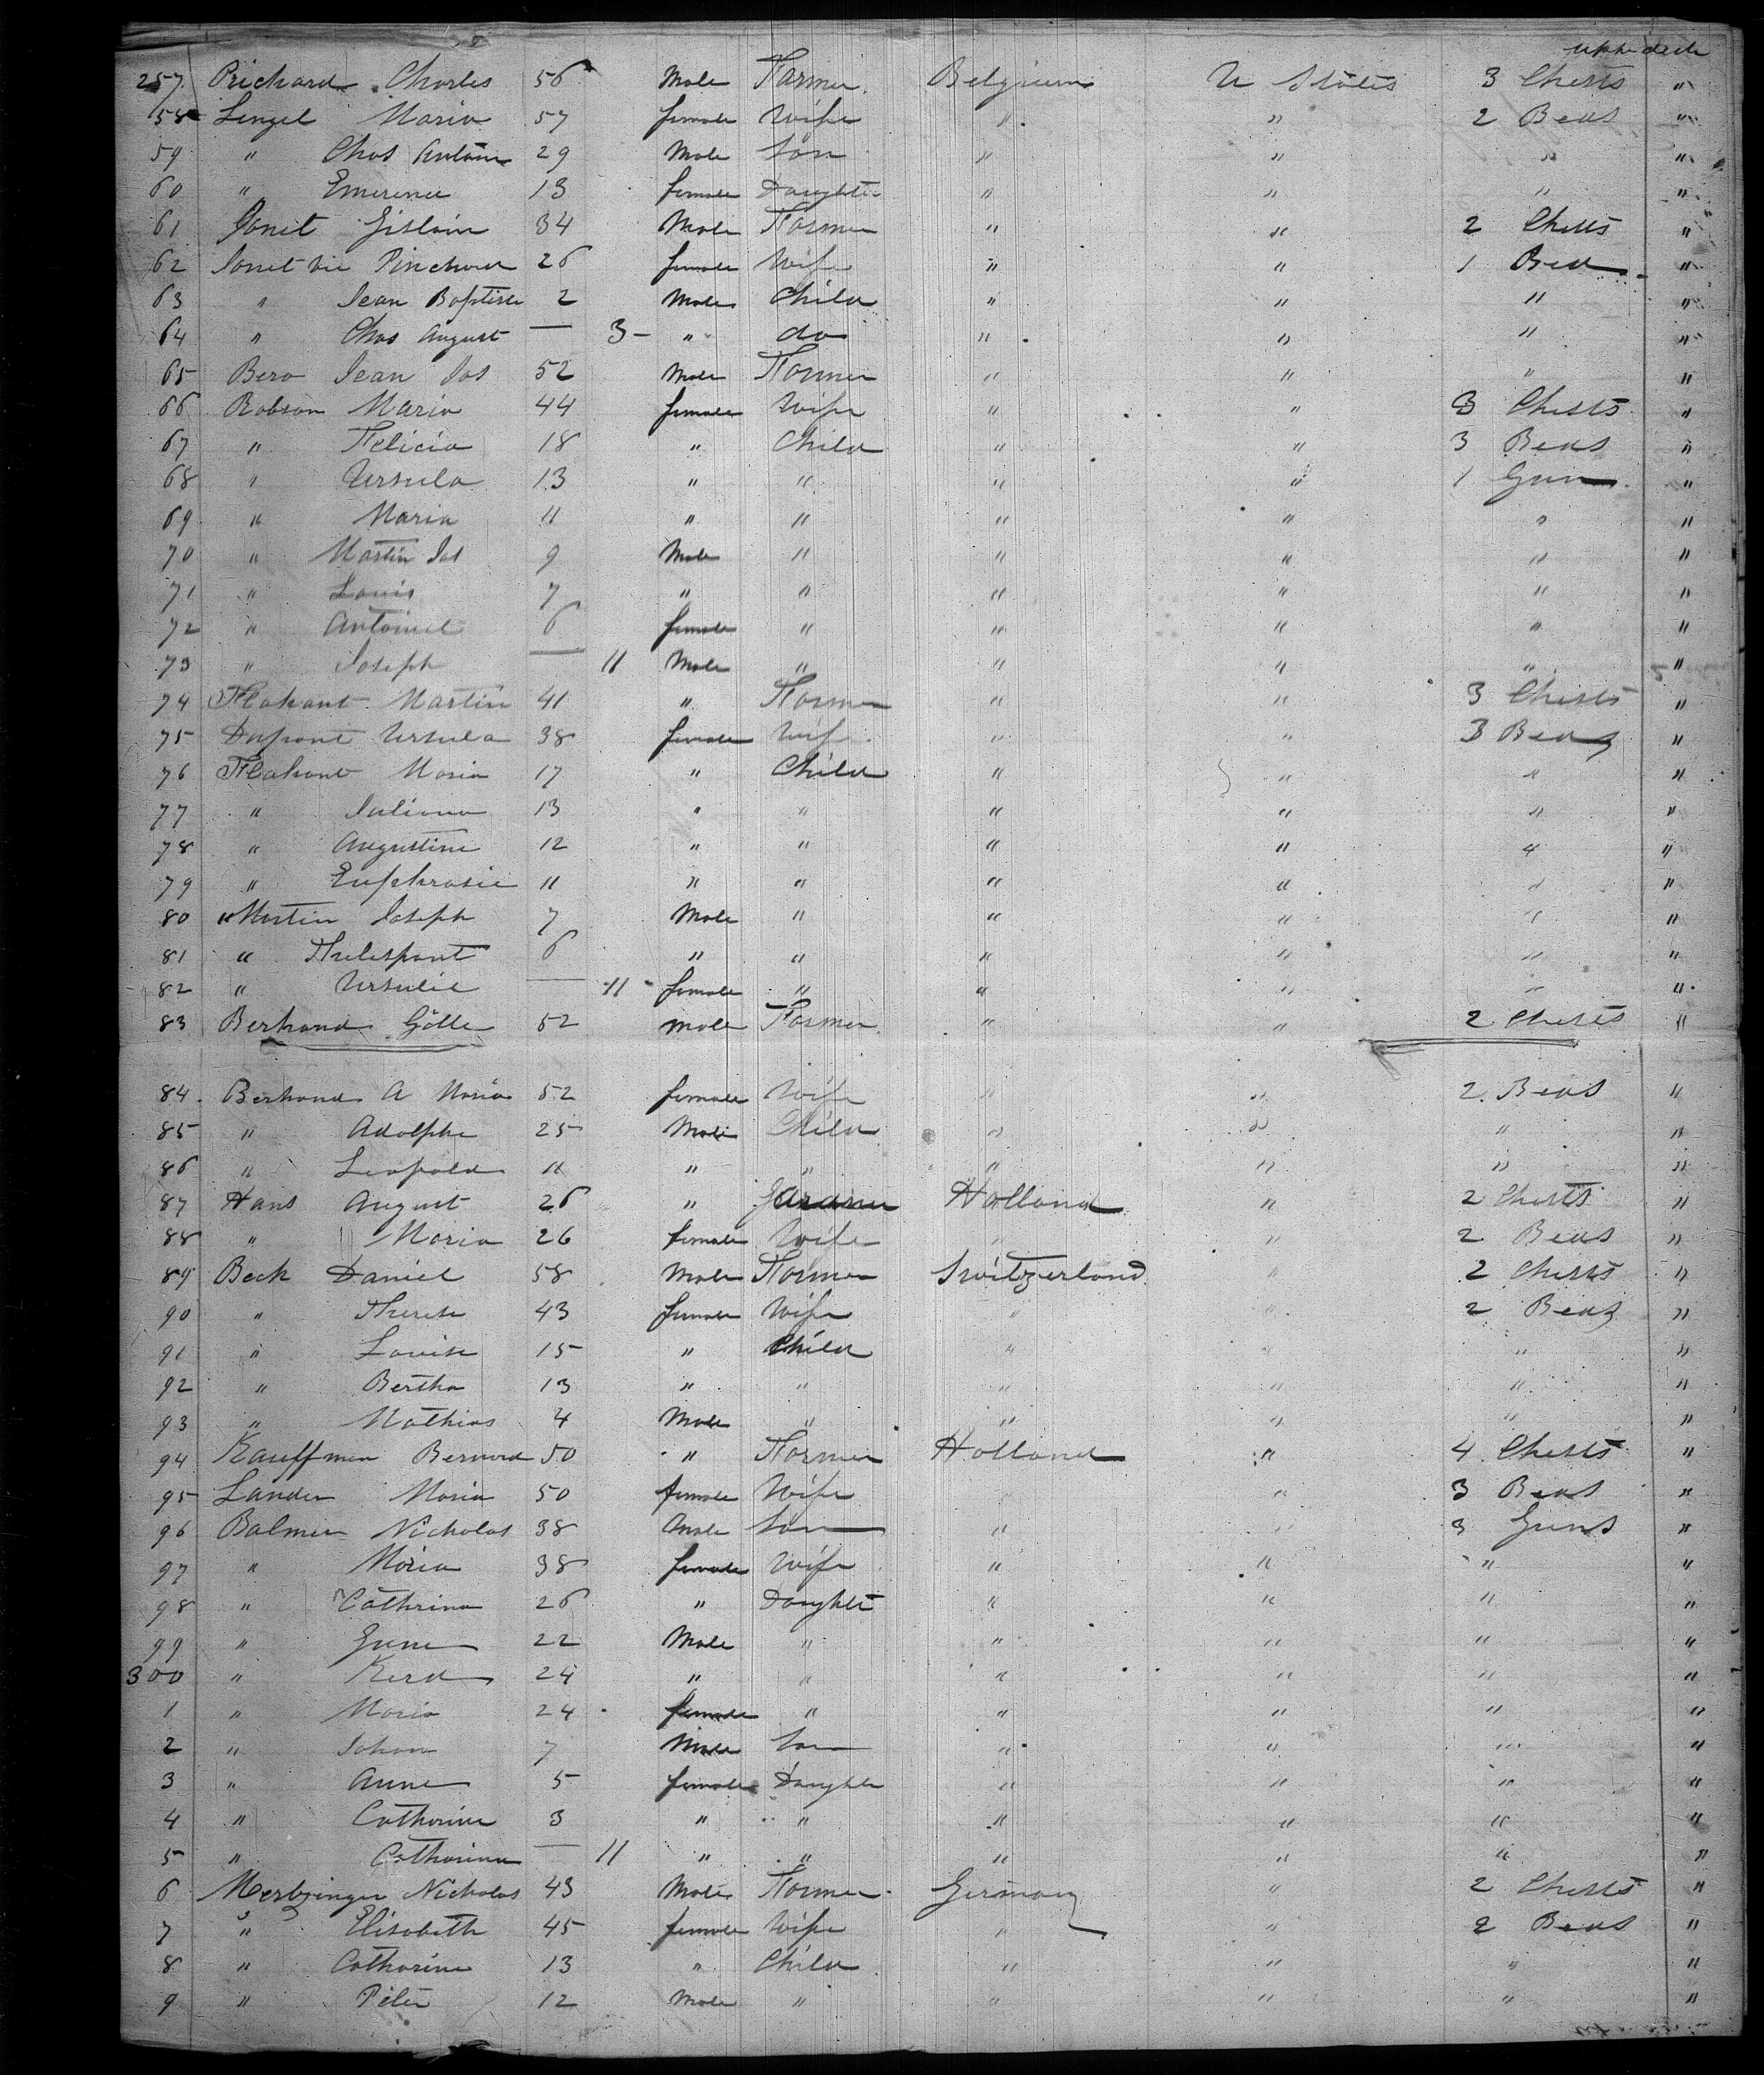 upper deck
257 Prichard Charles 56 Male Farmer Belgium U States 3 Chests "
58 Lengel Maria 57 female Wife " " 2 Beds "
59 " Chas Antoine 29 Male Son " " " "
60 " Emerence 13 female Daughter " " " "
61 Jonet Gislain 34 Male Farmer " " 2 Chests "
62 Jonet vie Pinchard 26 female Wife " " 1 Bed "
63 " Jean Baptiste 2 Male Child " " " "
64 " Chas August — 3 - " do " " " "
65 Bero Jean Jos 52 Male Farmer " " " "
66 Robson Maria 44 female Wife " " 3 Chests "
67 " Felicia 18 " Child " " 3 Beds "
68 " Ursula 13 " " " " 1 Gun "
69 " Maria 11 " " " " " "
70 " Martin Jos 9 Male " " " " "
71 " Louis 7 " " " " " "
72 " Antoinet 6 female " " " " "
73 " Joseph — 11 Male " " " " "
74 Flahant Martin 41 " Farmer " " 3 Chests "
75 Dupont Ursula 38 female Wife " " 3 Beds "
76 Flahant Maria 17 " Child " " " "
77 " Juliana 13 " " " " " "
78 " Augustine 12 " " " " " "
79 " Euphrasie 11 " " " " " "
80 " Martin Joseph 7 Male " " " " "
81 " Thelespont 6 " " " " " "
82 " Ursulie — 11 female " " " " "
83 Bertrand Gölle 52 male Farmer " " 2 Chests "
84 Bertrand A Maria 52 female Wife " " 2 Beds "
85 " Adolphe 25 Male Child " " " "
86 " Leopold 11 " " " " " "
87 Hans August 26 " Gardner Holland " 2 Chests "
88 " Maria 26 female Wife " " 2 Beds "
89 Beck Daniel 58 Male Farmer Switzerland " 2 Chests "
90 " Therese 43 female Wife " " 2 Beds "
91 " Louise 15 " Child " " " "
92 " Bertha 13 " " " " " "
93 " Mathias 4 Male " " " " "
94 Kauffman Bernard 50 " Farmer Holland " 4 Chests "
95 Lander Maria 50 female Wife " " 3 Beds "
96 Balmer Nicholas 38 Male Son " " 3 Guns "
97 " Maria 38 female Wife " " " "
98 " Cathrina 26 " Daughter " " " "
99 " 22 Male " " " " "
300 " 24 " " " " " "
1 " Maria 24 female " " " " "
2 " Johan 7 Male Son " " " "
3 " Anne 5 female Daughter " " " "
4 " Catharine 3 " " " " " "
5 " Catharina — 11 " " " " " "
6 Merbzinger Nicholas 43 Male Farmer Germany " 2 Chests "
7 " Elisabeth 45 female Wife " " 2 Beds "
8 " Catharine 13 " Child " " " "
9 " Peter 12 Male " " " " "